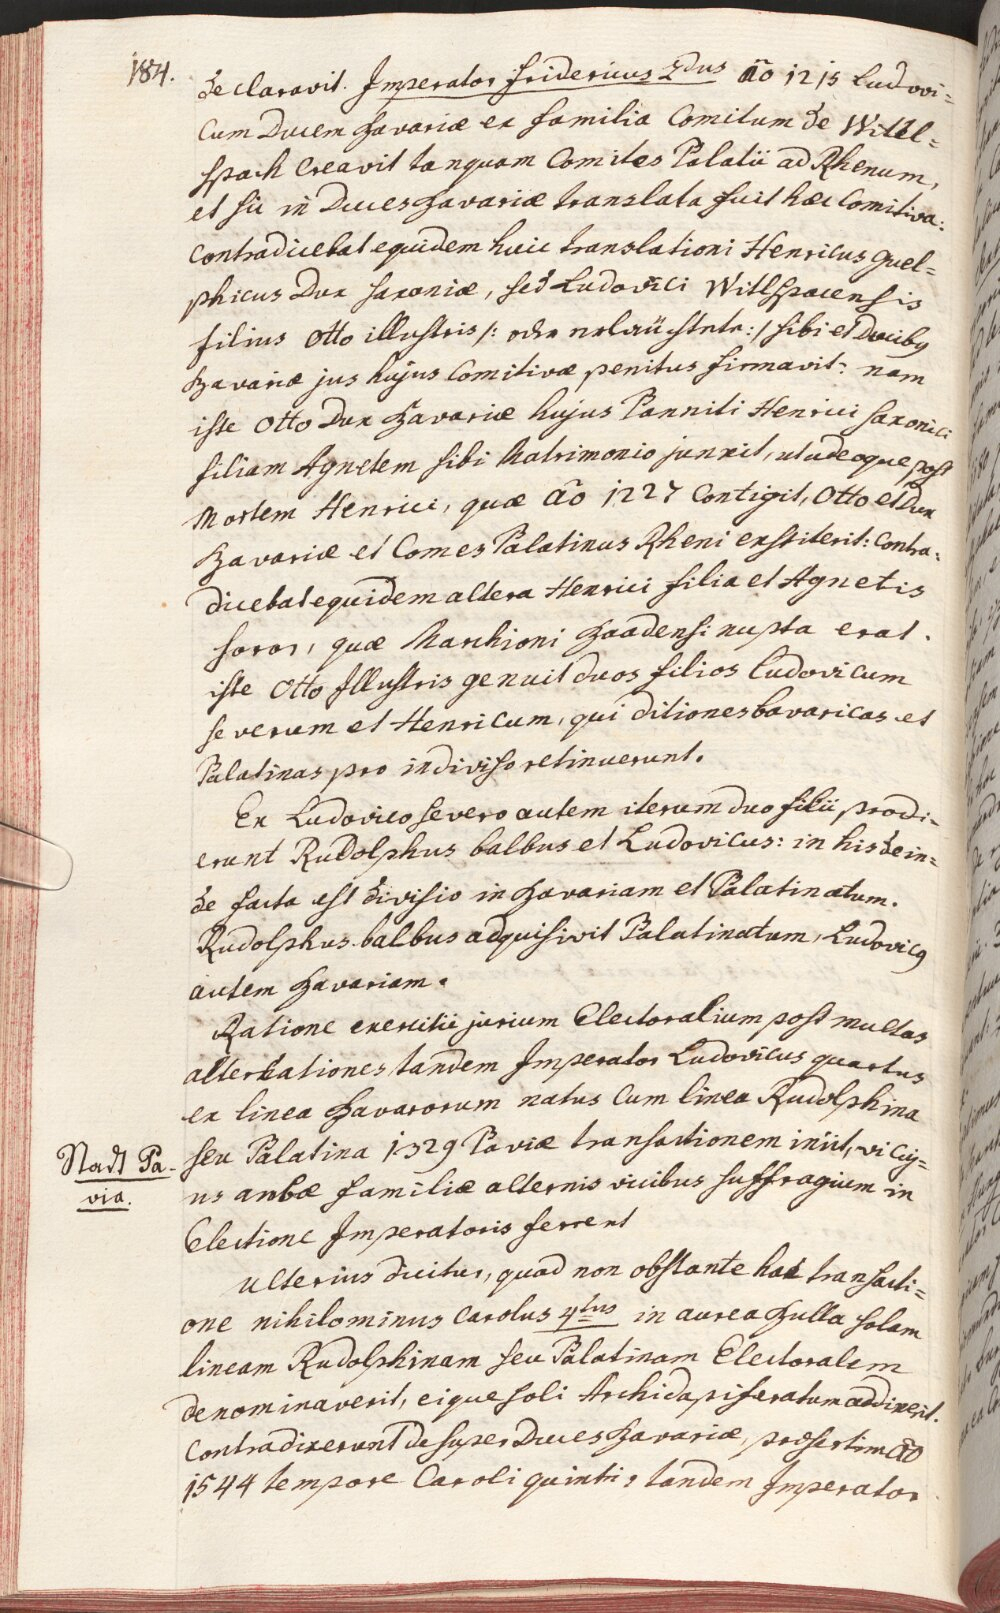 184.
declaravit. Imperator Fridericus 2dus aõ 1215 Ludovi=
cum Ducem Bavariæ ex familia Comitum de Wittl=
spach creavit tanquam Comites Palatii ad Rhenum,
et sic in Duces Bavariæ translata fuit hæc Comitiva:
contradicebat equidem huic translationi Henricus guel=
phicus Dux Saxoniæ, sed Ludovici Witlspacensis
filius Otto illustris /: oder erlaüchtete :/ sibi et Ducibꝰ
Bavariæ jus hujus Comitivæ penitus firmavit: nam
iste Otto Dux Bavariæ hujus Panniti Henrici Saxonici
filiam Agnetem sibi Matrimonio junxit, ut adeoque post
Mortem Henrici, quæ aõ 1227 Contigit, Otto et Dux
Bavariæ et Comes Palatinus Rheni exstiterit: Contra=
dicebat equidem altera Henrici filia et Agnetis
soror, quæ Marchioni Baadensi nupta erat.
iste Otto Illustris genuit duos filios Ludovicum
severum et Henricum, qui ditiones bavaricas et
Palatinas pro indiviso retinuerunt.
Ex Ludovico severo autem iterum duo filii prodi=
erunt Rudolphus balbus et Ludovicus: in his dein=
de facta est divisio in Bavariam et Palatinatum.
Rudolphus balbus adquisivit Palatinatum, Ludovicꝰ
autem Bavariam.
Ratione exercitii jurium Electoralium post multas
altercationes tandem Imperator Ludovicus quartus
ex linea Bavarorum natus cum linea Rudolphina
seu Palatina 1329 Paviæ transactionem iniit, vi cuj=
Stadt Pa-
via.
us ambæ familiæ alternis vicibus suffragium in
Electione Imperatoris ferrent
Ulterius dicitur, quod non obstante hac transacti=
one nihilominus Carolus 4tus in aurea Bulla solam
lineam Rudolphinam seu Palatinam Electoralem
denominaverit, eique soli Archidapiferatum addixerit.
Contradixerunt desuper Duces Bavariæ, præsertim aõ
1544 tempore Caroli quinti, tandem Imperator